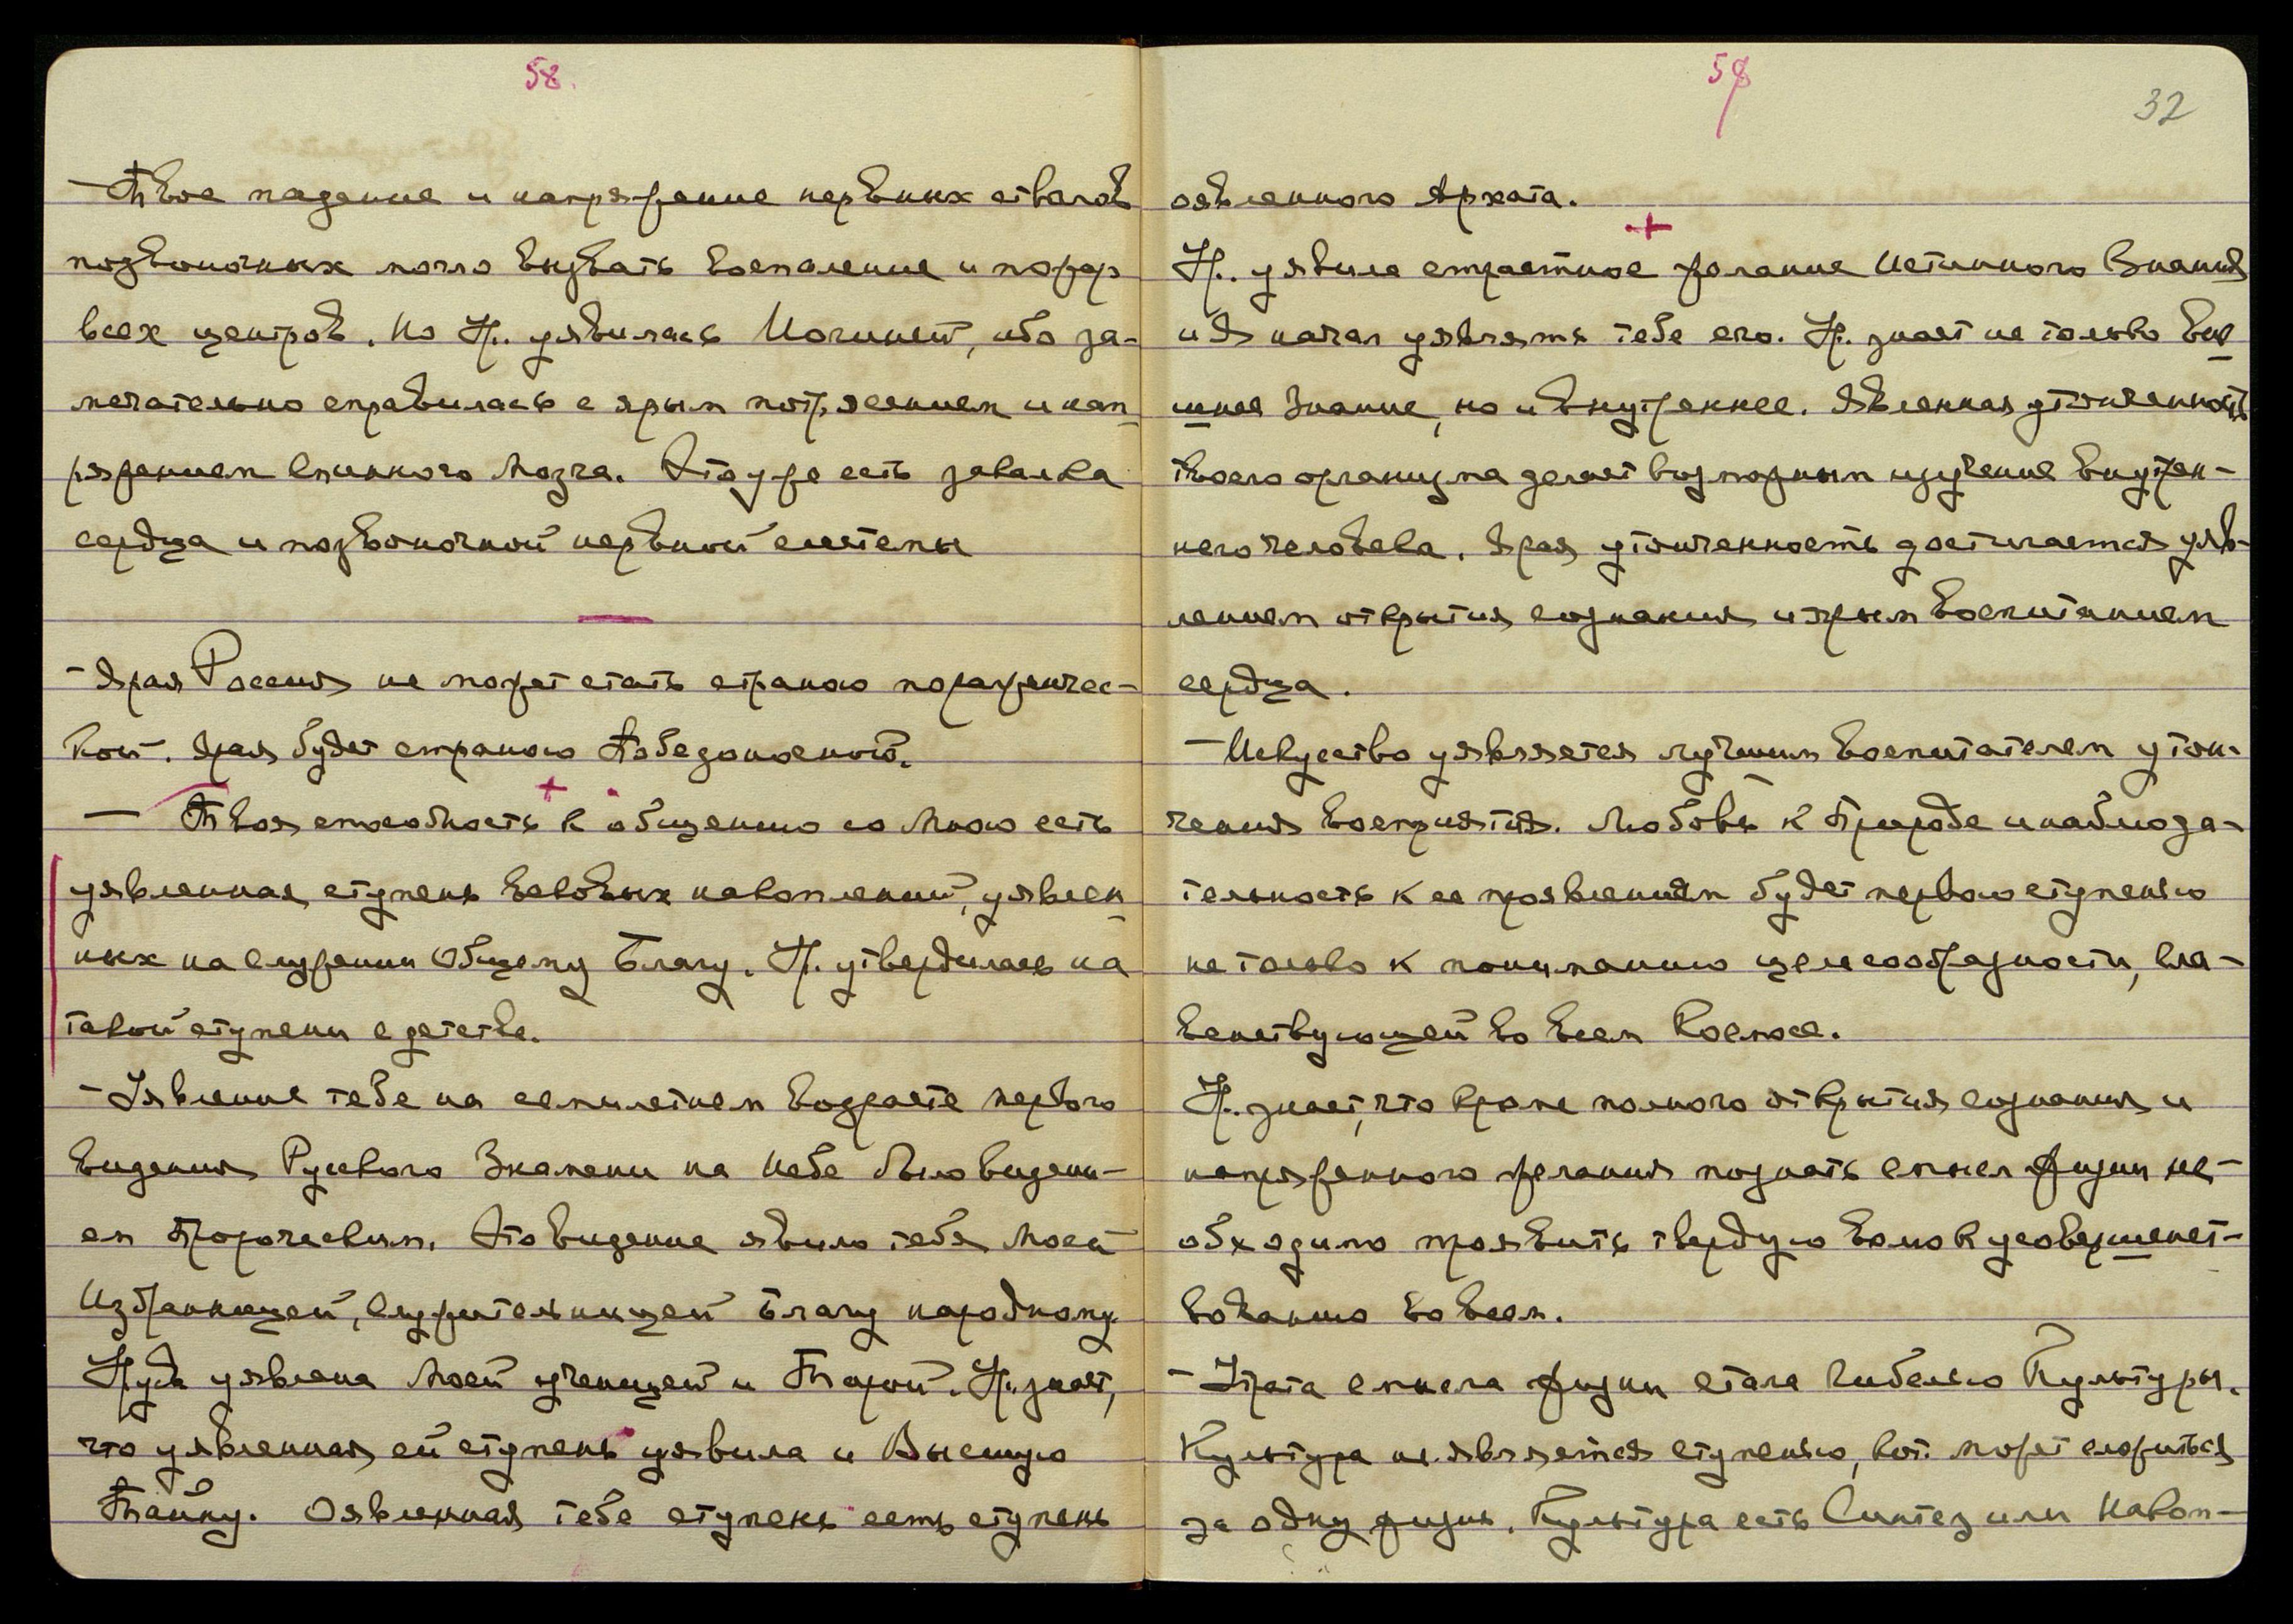 58.
— Твое падение и напряжение нервных стволов
позвоночных могло вызвать воспаление и пожар
всех центров. Но Ур. уявилась Могиней, ибо за-
мечательно справилась с ярым потрясением и нап
ряжением спинного Мозга. Это уже есть закалка
сердца и позвоночной нервной системы
— Ярая Россия не может стать страною пораженчес-
кой. Ярая будет страною Победоносной.
— Твоя способность к общению со Мною есть
уявленная ступень вековых накоплений, уявлен
ных на служении Общему Благу. Ур. утвердилась на
такой ступени с детства.
— Уявление тебе на семилетнем возрасте первого
видения Русского Знамени на Небе было видени-
ем Пророческим. Это видение явило тебя Моей
Избранницей, служительницей Благу народному.
Урув уявлена Моей ученицей и Тарой. Ур. знает,
что уявленная ей ступень уявила и Высшую
Тайну. Оявленная тебе ступень есть ступень
59
32
оявленного Архата.
Ур. уявила страстное желание Истинного Знания
и Я начал уявлять тебе его. Ур. знает не только вне
шнее Знание, но и внутреннее. Явленная утонченность
твоего организма делает возможным изучение внутрен-
него человека. Ярая утонченность достигается уяв-
лением открытия сознания и ярым воспитанием
сердца.
— Искусство уявляется лучшим воспитателем утон-
чения восприятия. Любовь к Природе и наблюда-
тельность к ее проявлениям будет первою ступенью
не только к пониманию целесообразности, гла-
венствующей во всем Космосе.
Ур. знает, что кроме полного открытия сознания и
напряженного желания познать смысл жизни не-
обходимо проявить твердую волю к усовершенст-
вованию во всем.
— Утрата смысла жизни стала гибелью Культуры.
Культура не является ступенью, кот. может сложиться
за одну жизнь. Культура есть Синтез или Накоп-